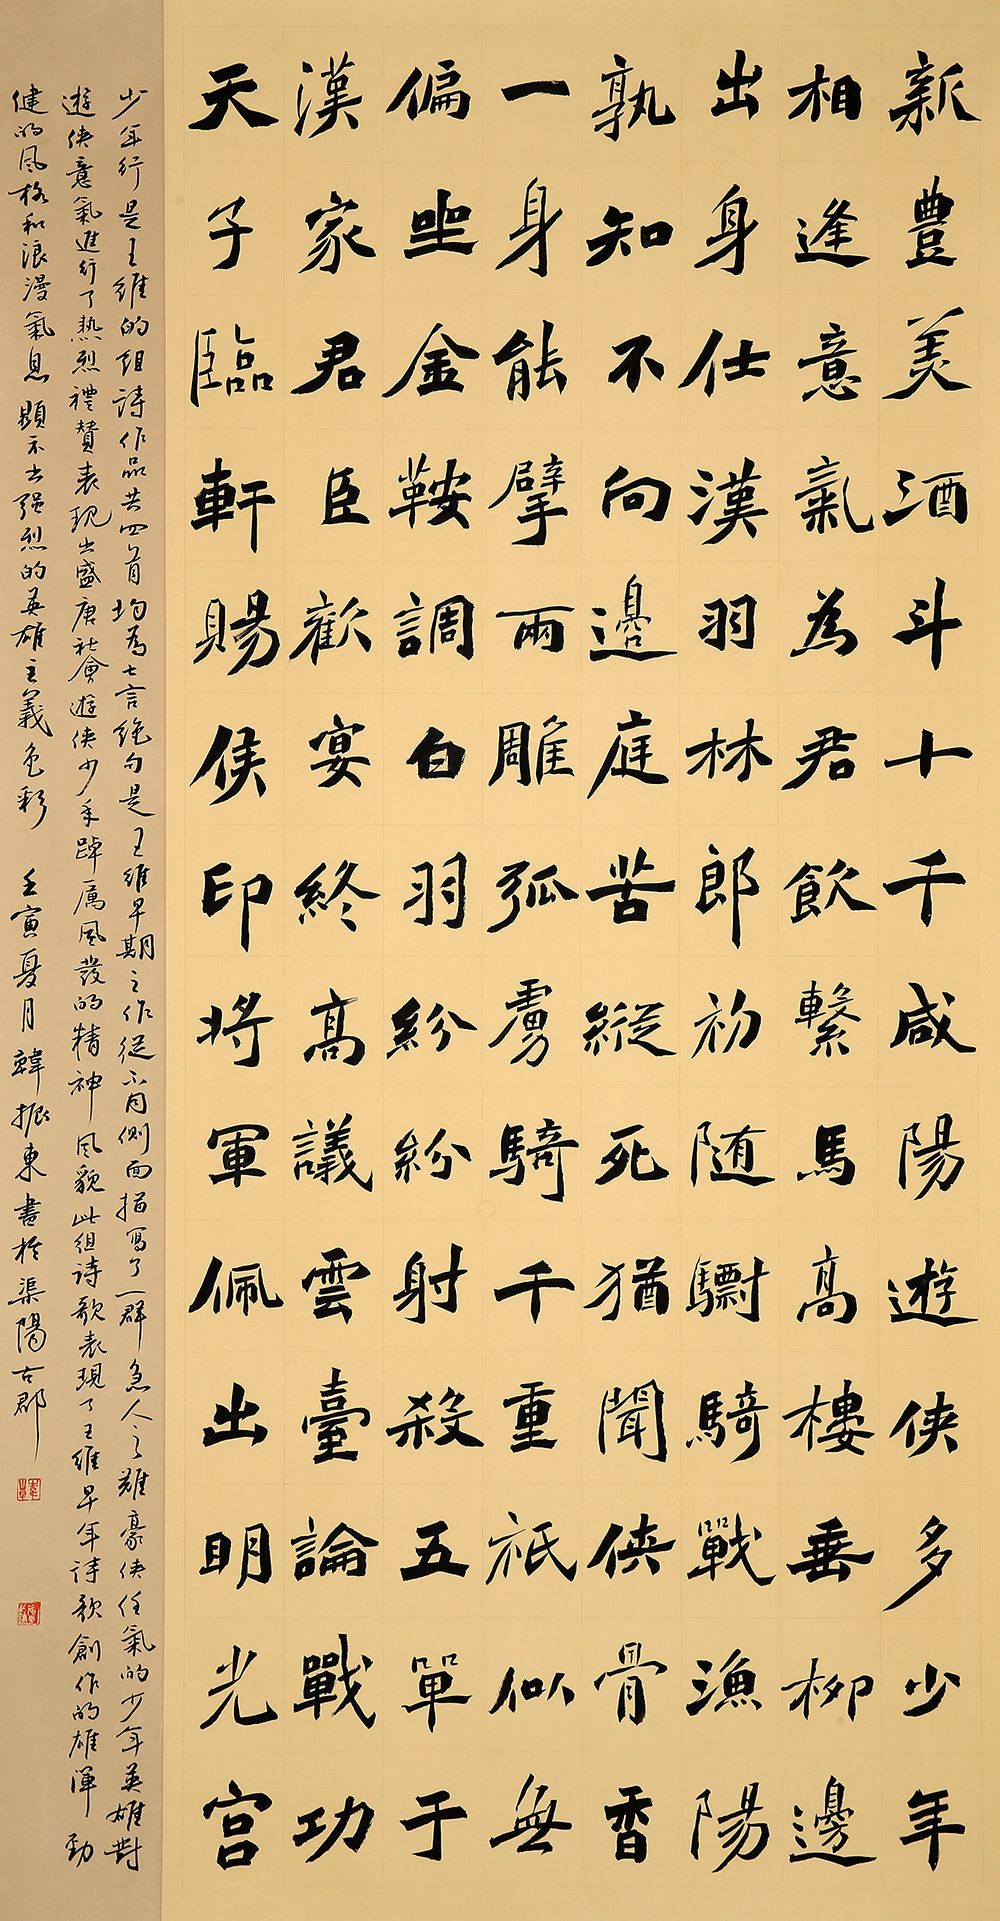 新豐美酒斗十千咸陽遊俠多少年
相逢意氣為君飲繫馬高樓垂柳邊
出身仕漢羽林郎初随驃騎戰漁陽
孰知不向邊庭苦縱死猶聞俠骨香
一身能擘兩雕弧虜騎千重祇似無
偏坐金鞍調白羽紛紛射殺五單于
漢家君臣歡宴終高議雲臺論戰功
天子臨軒賜侯印將軍佩出明光宮
少年行是王維的組詩作品共四首均為七言絶句是王維早期之作從不同側面描寫了一群急人之難豪俠任氣的少年英雄對
遊俠意氣進行了熱烈禮贊表現出盛唐社會遊俠少年踔厲風發的精神風貌此组詩歌表現了王維早年詩歌創作的雄渾勁
健的風格和浪漫氣息顯示出强烈的英雄主義色彩 壬寅夏月韓振東書於渠陽古郡